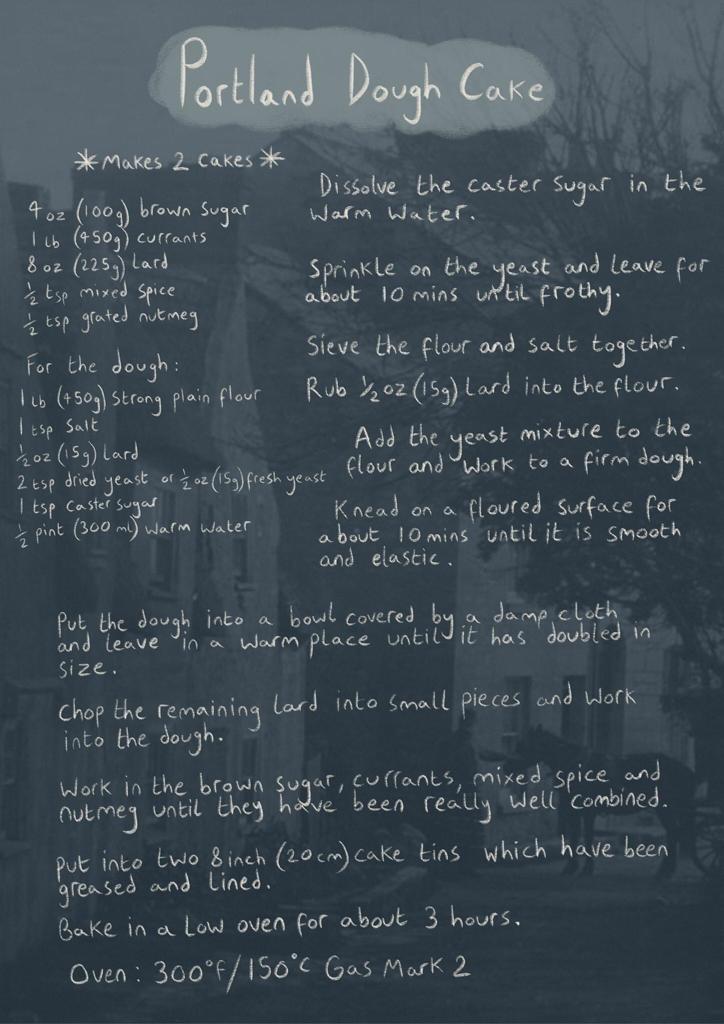 Portland Dough Cake
*Makes 2 Cakes*
4 oz (100g) brown sugar
1 lb (450g) currants
8 oz (225g) Lard
½ tsp mixed spice
½ tsp grated nutmeg
For the dough:
1 lb (450g) Strong plain flour
1 tsp Salt
½ oz (15g) Lard
2 tsp dried yeast or ½ oz (15g) fresh yeast
1 tsp caster sugar
½ pint (300 ml) warm water
Dissolve the caster sugar in the
warm water.
Sprinkle on the yeast and leave for
about 10 mins until frothy.
Sieve the flour and salt together.
Rub ½ oz (15g) Lard into the flour.
Add the yeast mixture to the
flour and work to a firm dough.
Knead on a floured surface for
about 10 mins until it is smooth
and elastic.
Put the dough into a bowl covered by a damp cloth
and leave in a warm place until it has doubled in
size.
Chop the remaining lard into small pieces and work
into the dough.
Work in the brown sugar, currants, mixed spice and
nutmeg until they have been really well combined.
Put into two 8 inch (20cm) cake tins which have been
greased and lined.
Bake in a low oven for about 3 hours.
Oven: 300°F/150°C Gas Mark 2